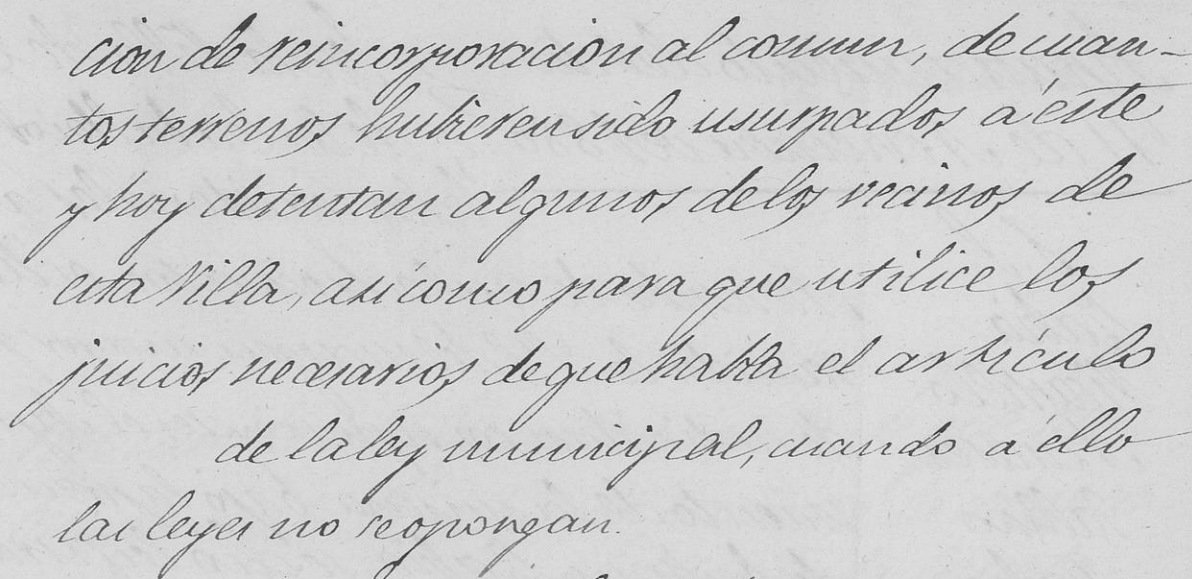 cion de reincorporacion al comun, de cuan-
tos terrenos hubieren sido usurpados á éste
y hoy detentan algunos de los vecinos de
esta Villa, así como para que utilice los
juicios necesarios de que habla el artículo
de la ley municipal, cuando á ello
las leyes no se opongan.